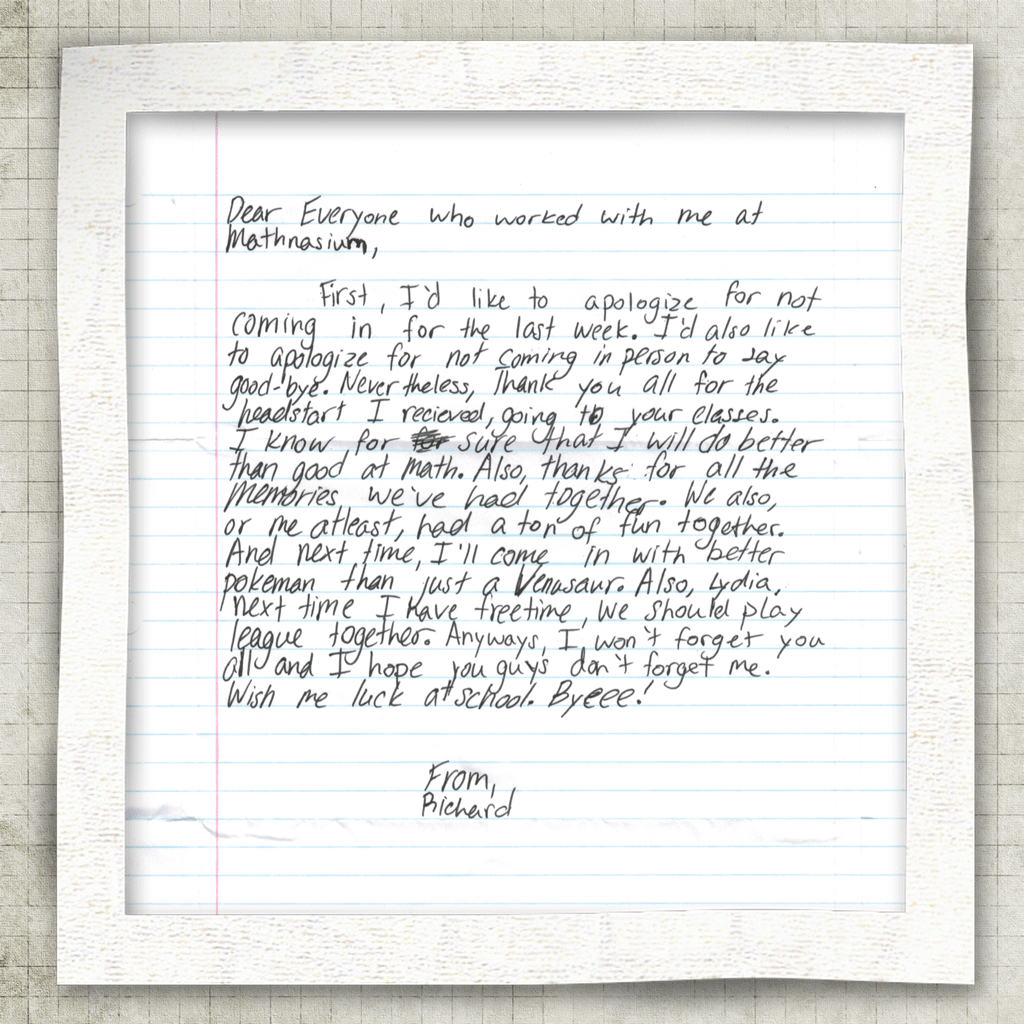 Dear Everyone who worked with me at
Mathnasium,
First, I'd like to apologize for not
coming in for the last week. I'd also like
to apologize for not coming in person to say
good-bye. Nevertheless, Thank you all for the
headstart I recieved, going to your classes.
I know for sure that I will do better
than good at math. Also, thanks for all the
Memories we've had together. We also,
or me atleast, had a ton of fun together.
And next time, I'll come in with better
pokeman than just a Venusaur. Also, Lydia,
next time I have freetime, we should play
league together. Anyways, I won't forget you
all and I hope you guys don't forget me.
Wish me luck at school. Byeee!
From,
Richard